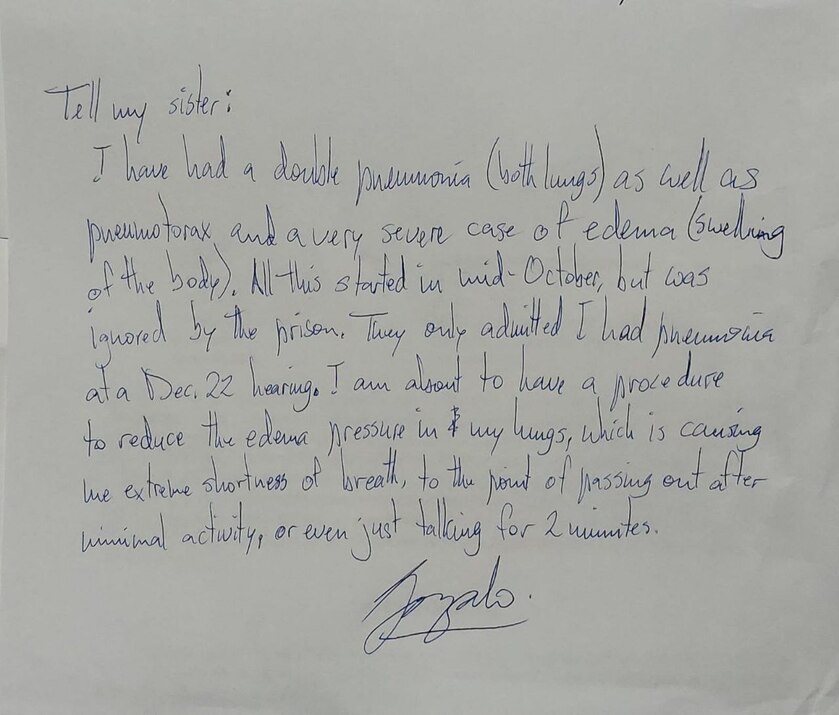 Tell my sister:
I have had a double pneumonia (both lungs) as well as
pneumotorax and a very severe case of edema (swelling
of the body). All this started in mid-October, but was
ignored by the prison. They only admitted I had pneumonia
at a Dec. 22 hearing. I am about to have a procedure
to reduce the edema pressure in my lungs, which is causing
me extreme shortness of breath, to the point of passing out after
minimal activity, or even just talking for 2 minutes.
Gonzalo.